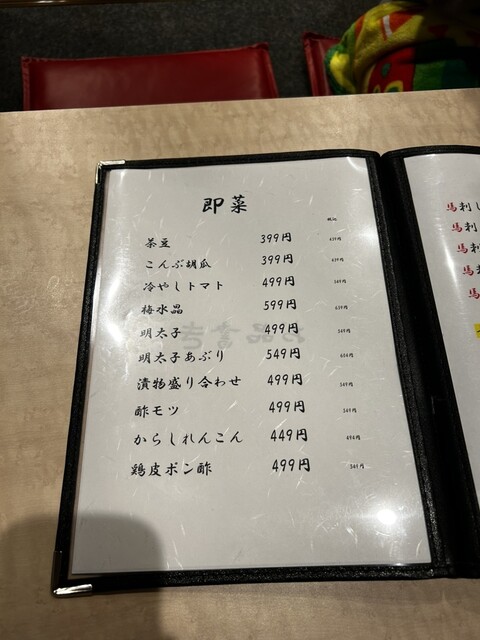 即菜
税込
茶豆 399円 439円
こんぶ胡瓜 399円 439円
冷やしトマト 499円 549円
梅水晶 599円 659円
明太子 499円 549円
明太子あぶり 549円 604円
漬物盛り合わせ 499円 549円
酢モツ 499円 549円
からしれんこん 449円 494円
鶏皮ポン酢 499円 549円
馬刺し
馬刺
馬刺
馬
馬